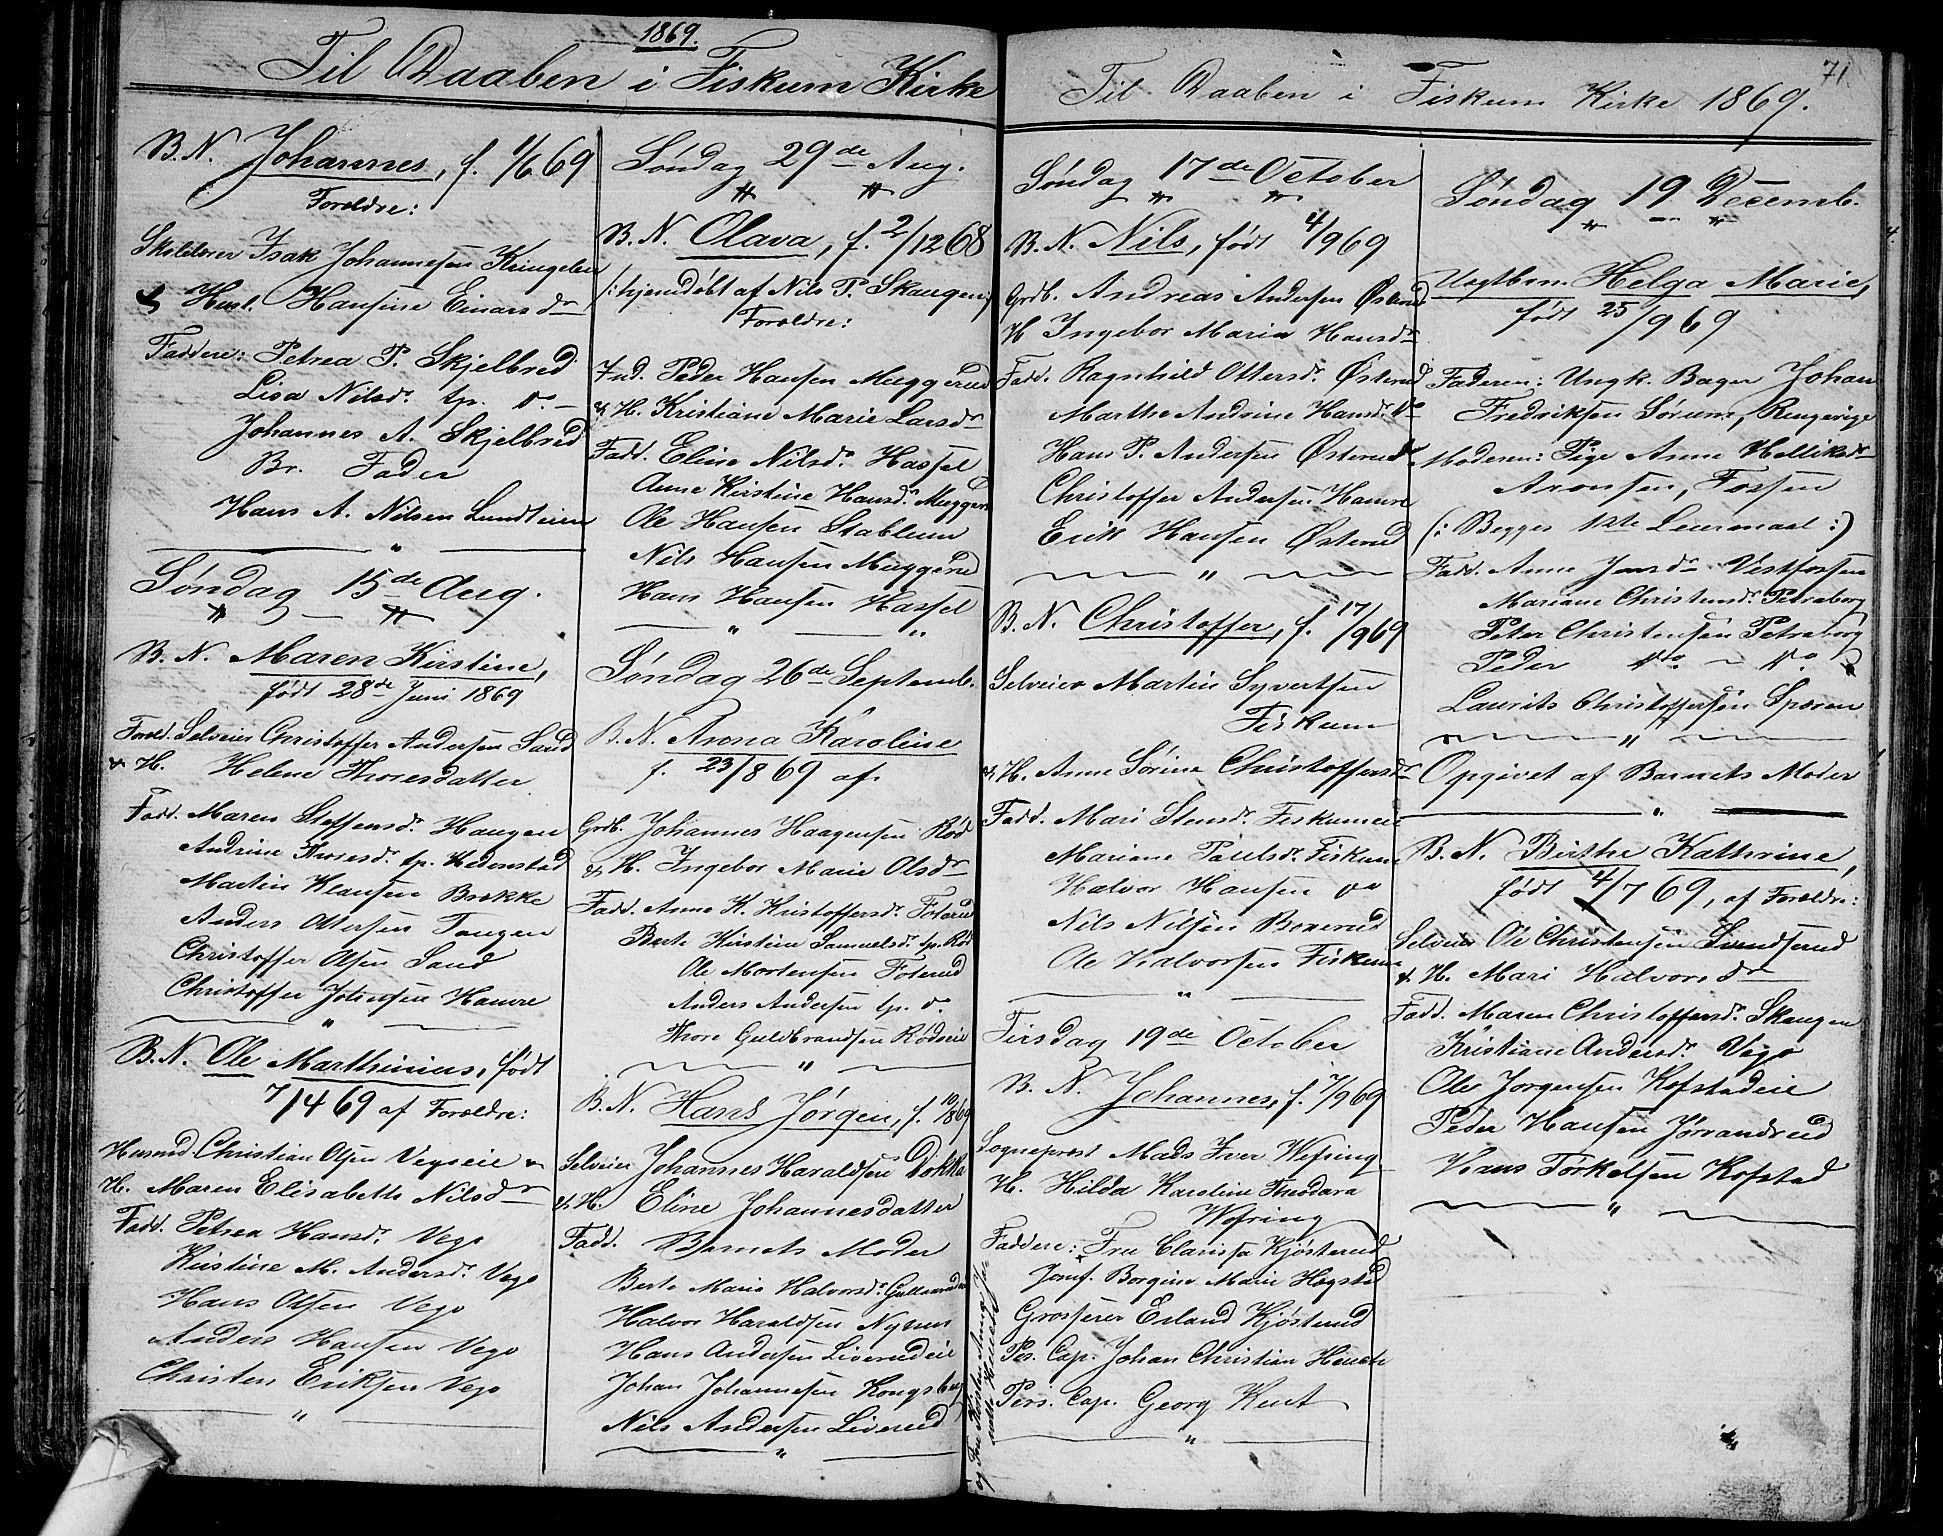 1869.
Til Daaben i Fiskum Kirke
B. N. Johannes, f. 1/6 69
Forældre:
Skildvær Isak Johannesen Kringelen
& Hust. Hansine Einarsdr
Faddere: Petrea P. Skjelbred
Lisa Nilsdr. tp. do
Johannes A. Skjelbred
Br. Fader
Hans A. Nilsen Lundteien
"
Søndag 15de Aug.
B. N. Maren Kirstine,
født 28de Juni 1869
Foræld. Selveier Christoffer Andersen Sand
& H. Helene Thoresdatter.
Fadd. Maren Steffensdr. Haugen
Andrine Thoresdr. tp. Kedonstad
Martin Klausen Brekke
Anders Ottersen Tangen
Christoffer Olsen Sand
Christoffer Hamre
"
B. N. Ole Marthinius, født
7/4 69 af Forældre:
Husmd Christian Olsen Vegoeie &
H. Maren Elisabeth Nilsdr
Fadd. Petrea Hansdr. Vego
Kirstine M. Andersdr. Vego
Hans Olsen Vego
Anders Hansen Vego
Christen Eriksen Vego
"
Søndag 29de Aug.
B. N. Olava, f. 2/12 68
(: hjemdøbt af Nils P. Skaugen :)
Forældre:
Ind. Peder Hansen Muggerud
& H. Kristiane Marie Larsdr
Fadd. Eline Nilsdr. Hassel
Anne Kirstine Hansdr. Muggerud
Ole Hansen Stablum
Nils Hansen Muggerud
Hans Hansen Hassel
" "
Søndag 26de Septemb.
B. N. Anna Karoline
f. 23/8 69 af
Grdb. Johannes Haagensen Rød
& H. Ingebor Marie Olsdr
Fadd. Anne K. Kristoffersdr. Foterud
Berte Kirstine Samuelsdr. tp. Rød
Ole Mortensen Foterud
Anders Andersen tp. do.
Thore Guldbrandsen Rødseie
"
B. N. Hans Jørgen, f. 10/8 69
Selveier Johannes Haraldsen Dokka
& H. Eline Johannesdatter
Fadd. Barnets Moder
Berte Marie Halvorsdr.
Halvor Haraldsen Nysten
Hans Andersen Liverudeie
Johan Johannesen Kongsberg
Nils Andersen Liverud
"
71.
Til Daaben i Fiskum Kirke 1869.
Søndag 17de October
B. N. Nils, født 4/9 69
Grdb. Andreas Andersen Østerud
H Ingebor Maria Hansdr
Fadd. Ragnhild Ottersdr. Østerud
Marthe Andrine Hansdr. do
Hans P. Andersen Østerud
Christoffer Andersen Hamre
Erik Hansen Østerud
"
B. N. Christoffer, f. 17/9 69
Selveier Martin Syvertsen
Fiskum
& H. Anne Sørine Christoffersdr
Fadd. Mari Stensdr. Fiskumeie
Mariane Paulsdr. Fiskum
Halvor Hansen do
Nils Nilsen Boxerud
Ole Halvorsen Fiskum
"
Tirsdag 19de October
B. N. Johannes, f. 7/9 69
Sogneprest Mads Iver Wefring
H. Hilda Karoline Theodara
Wefring
Faddere: Fru Clarissa Kjøsterud
Jomf. Borgine Marie Hogstad
Grosserer Erland Kjøsterud
Pers. Cap. Johan Christian Heuch
Pers. Cap. Georg Kent
og Fru Kirsten
"
Søndag 19 Decemb.
Uægtbrn. Helga Marie,
født 25/9 69
Faderen: Ungk. Bager Johan
Fredriksen Sørum, Ringerige
Moderen: Pige Anne Helliksdr
Aronsen, Fossen
(: Begges 1ste Leiermaal :)
Fadd. Anne Jensdr Vestfossen
Mariane Christensdr. Petraborg
Peter Christensen Petraborg
Peder do - do
Laurits Christoffersen Speren
"
Opgivet af Barnets Moder
"
B. N. Birthe Kathrine,
født 4/7 69, af Forældre:
Selveier Ole Christensen Lundsend
& H. Mari Halvorsdr
Fadd. Maren Christoffersdr. Skaugen
Kristiane Andersdr. Vego
Ole Jørgensen Kofstadeie
Peder Hansen Jørrandrud
Hans Torkelsen Kofstad
"